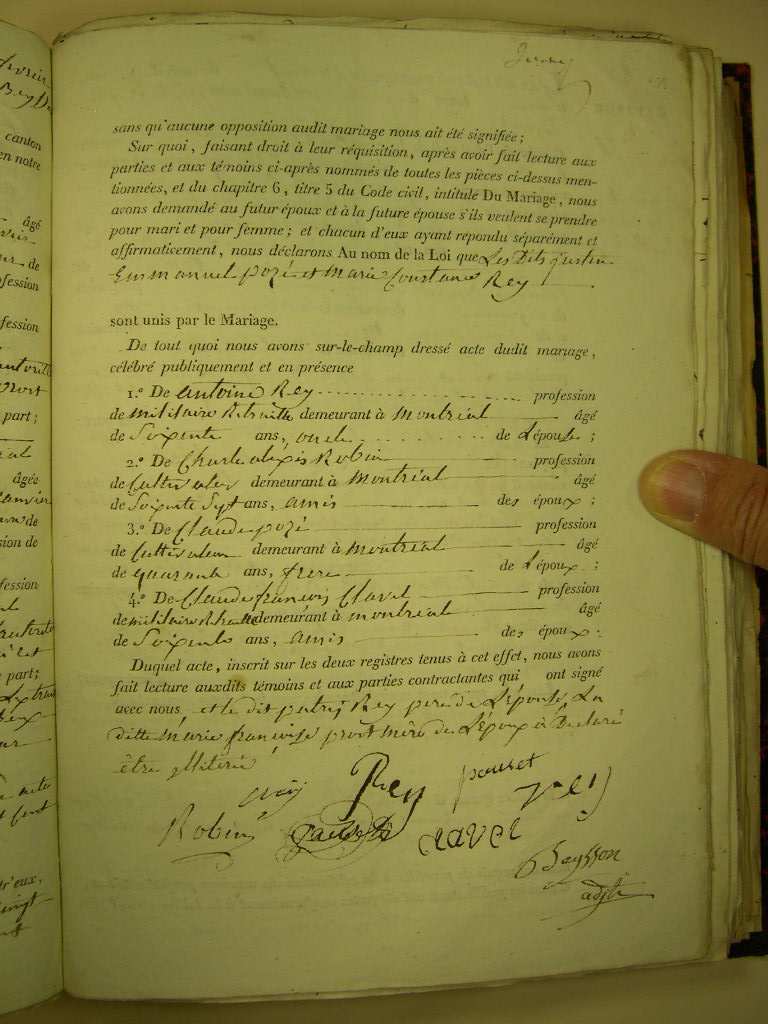 sans qu'aucune opposition audit mariage nous ait été signifiée ;
Sur quoi, faisant droit à leur réquisition, après avoir fait lecture aux
parties et aux témoins ci-après nommés de toutes les pièces ci-dessus men-
tionnées, et du chapitre 6, titre 5 du Code civil, intitulé Du Mariage, nous
avons demandé au futur époux et à la future épouse s'ils veulent se prendre
pour mari et pour femme ; et chacun d'eux ayant répondu séparément et
affirmativement, nous déclarons Au nom de la Loi que Les Dits
Emmanuel pozé et Marie Constance Rey
sont unis par le Mariage.
De tout quoi nous avons sur-le-champ dressé acte dudit mariage,
célébré publiquement et en présence
1.º De antoine Rey profession
de militaire Retraitte demeurant à Montréal âgé
de Soixente ans, oncle de Lépouse ;
2.º De Charle alexis Robin profession
de Cultivateur demeurant à montréal âgé
de Soixente Sept ans, amis des époux ;
3.º De Claude pozé profession
de Cultivateur demeurant à montréal âgé
de quarante ans, frere de Lépoux ;
4.º De Claude françois Clavel profession
de militaire Retraitte demeurant à montréal âgé
de Soixente ans, amis des époux.
Duquel acte, inscrit sur les deux registres tenus à cet effet, nous avons
fait lecture auxdits témoins et aux parties contractantes qui ont signé
avec nous, et le dit Rey pere de Lépouse La
ditte Marie françoise mère de Lépoux à Déclaré
être illiteré
Rey
Robin clavel
Beysson
adjt
canton
en notre
âgé
de
profession
part ;
âgée
de
part ;